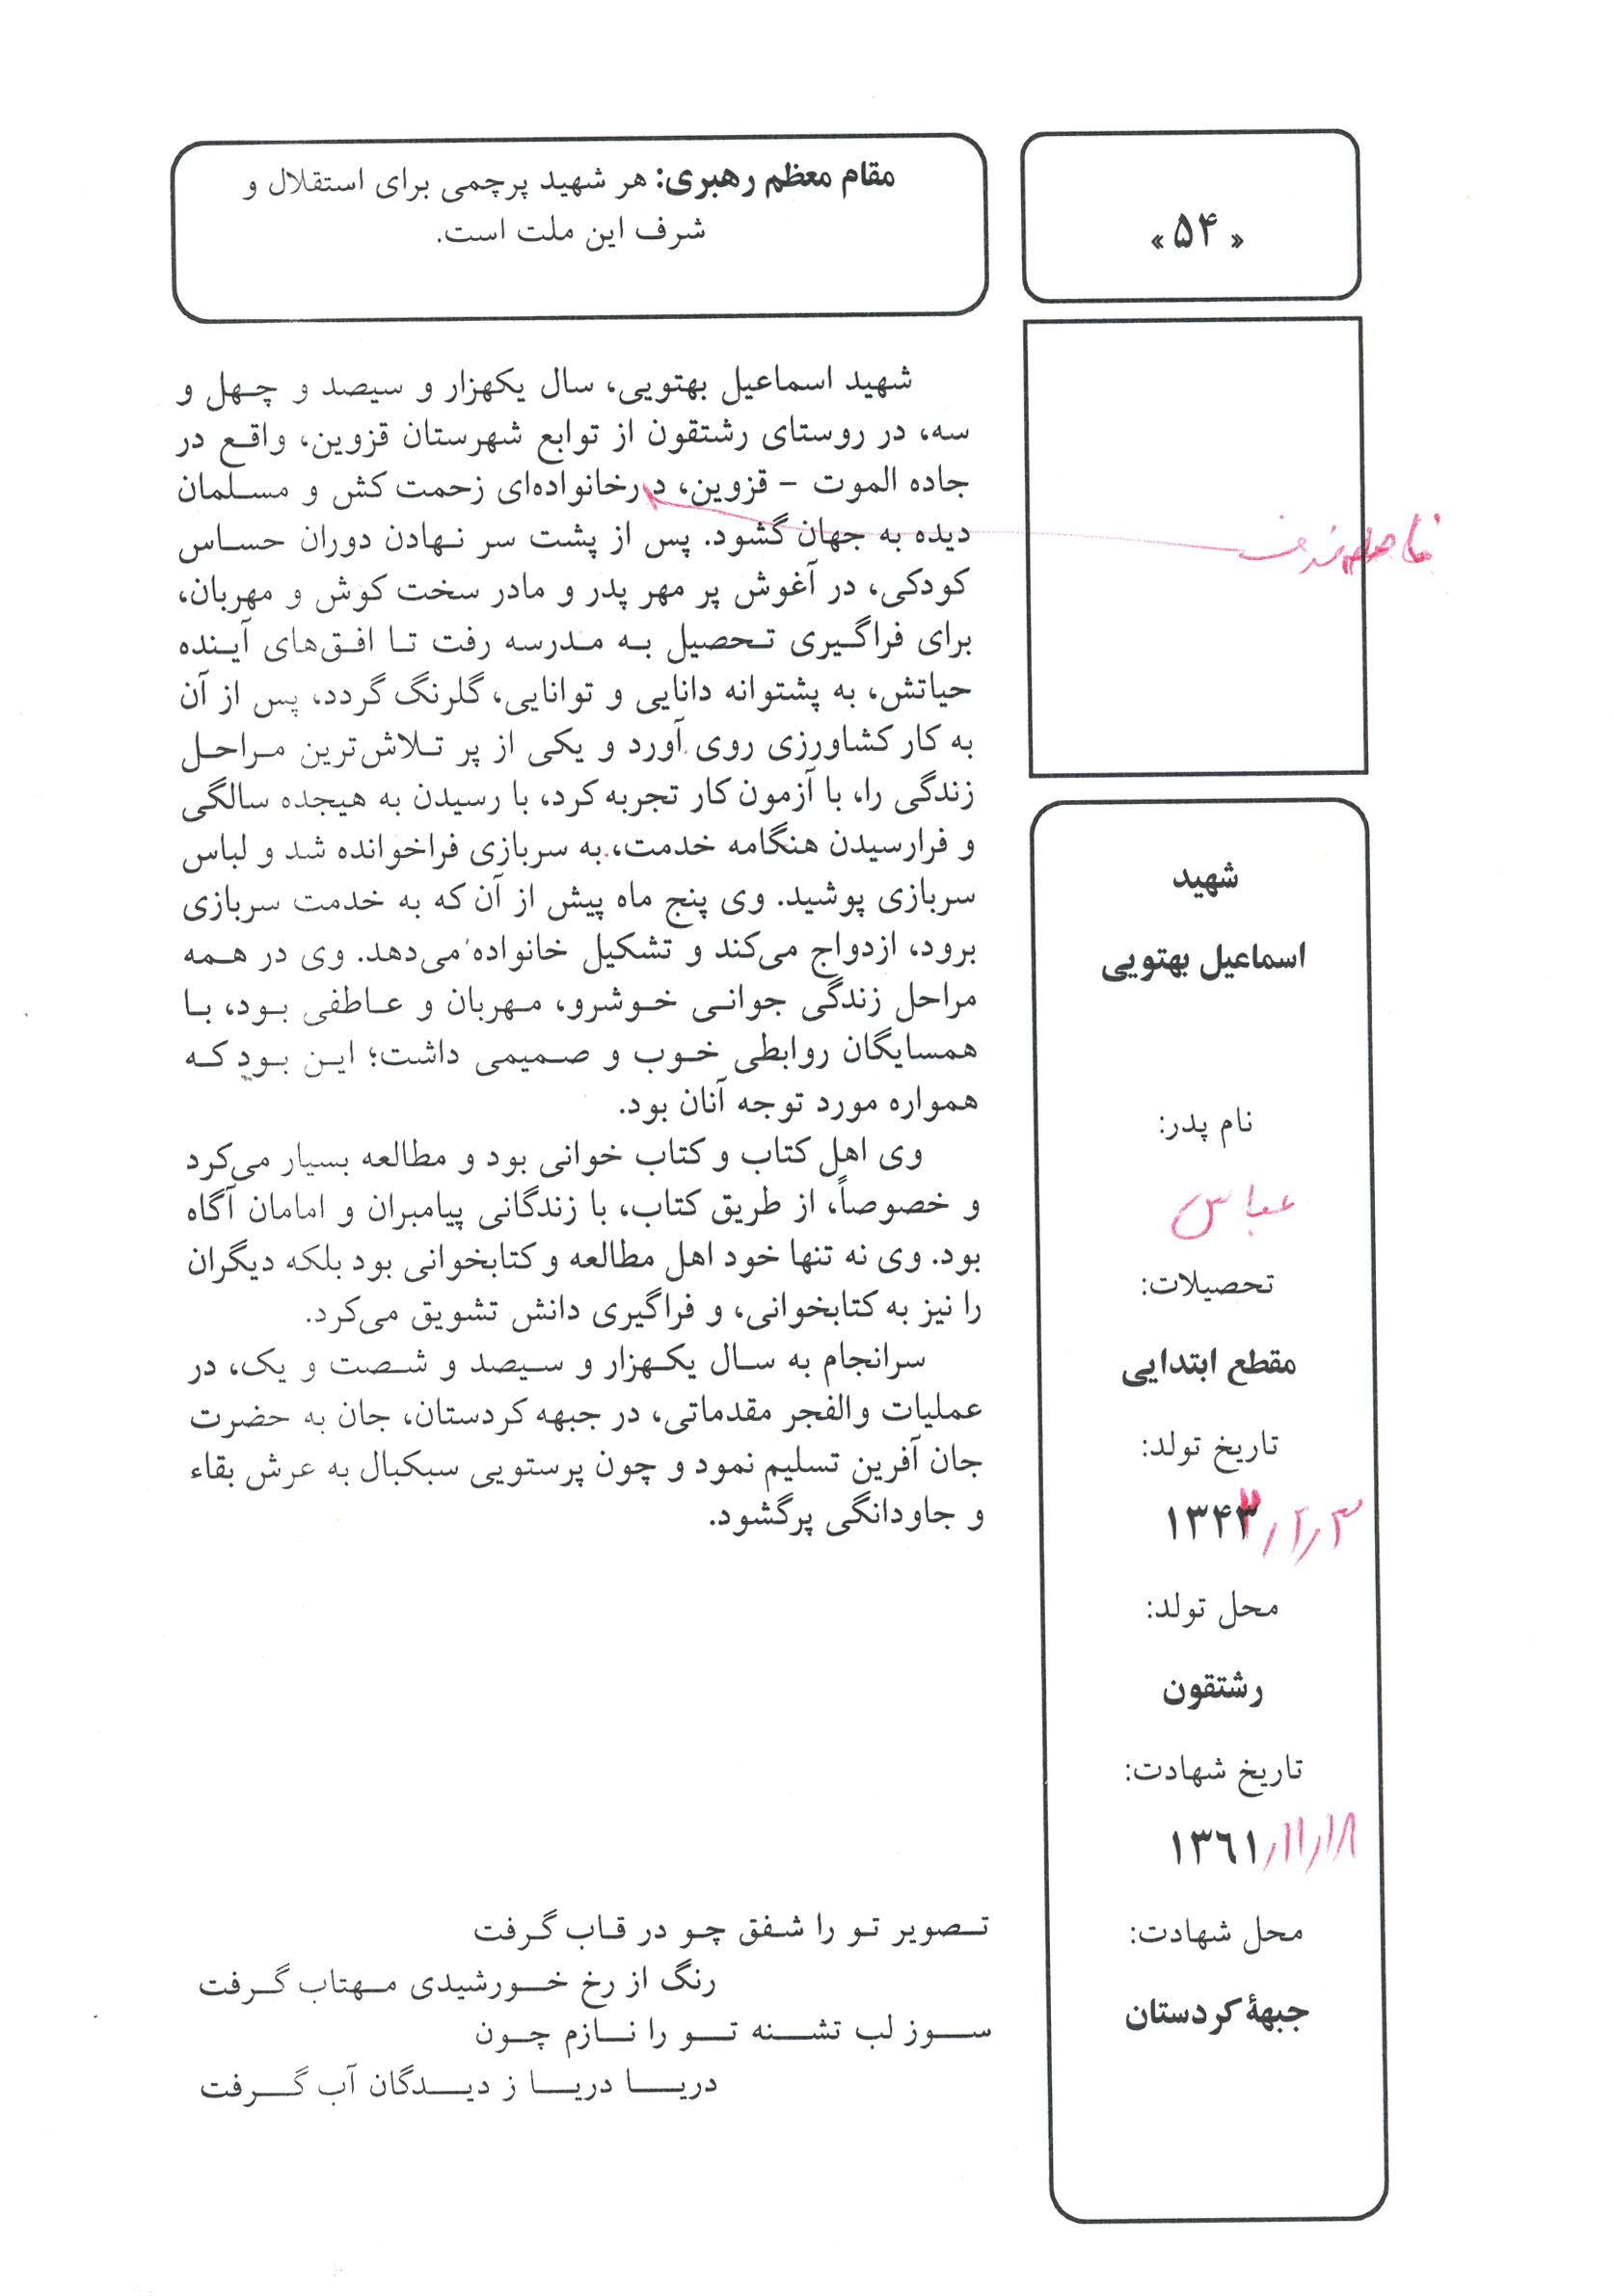 « ۵۴ »
مقام معظم رهبری: هر شهید پرچمی برای استقلال و
شرف این ملت است.
شهید اسماعیل بهتویی، سال یکهزار و سیصد و چهل و
سه، در روستای رشتقون از توابع شهرستان قزوین، واقع در
جاده الموت - قزوین، درخانواده‌ای زحمت کش و مسلمان
دیده به جهان گشود. پس از پشت سر نهادن دوران حساس
کودکی، در آغوش پر مهر پدر و مادر سخت کوش و مهربان،
برای فراگیری تحصیل به مدرسه رفت تا افق‌های آینده
حیاتش، به پشتوانه دانایی و توانایی، گلرنگ گردد، پس از آن
به کار کشاورزی روی آورد و یکی از پر تلاش‌ترین مراحل
زندگی را، با آزمون کار تجربه کرد، با رسیدن به هیجده سالگی
و فرارسیدن هنگامه خدمت، به سربازی فراخوانده شد و لباس
سربازی پوشید. وی پنج ماه پیش از آن که به خدمت سربازی
برود، ازدواج می‌کند و تشکیل خانواده می‌دهد. وی در همه
مراحل زندگی جوانی خوشرو، مهربان و عاطفی بود، با
همسایگان روابطی خوب و صمیمی داشت؛ این بود که
همواره مورد توجه آنان بود.
وی اهل کتاب و کتاب خوانی بود و مطالعه بسیار می‌کرد
و خصوصاً، از طریق کتاب، با زندگانی پیامبران و امامان آگاه
بود. وی نه تنها خود اهل مطالعه و کتابخوانی بود بلکه دیگران
را نیز به کتابخوانی، و فراگیری دانش تشویق می‌کرد.
سرانجام به سال یکهزار و سیصد و شصت و یک، در
عملیات والفجر مقدماتی، در جبهه کردستان، جان به حضرت
جان آفرین تسلیم نمود و چون پرستویی سبکبال به عرش بقاء
و جاودانگی پرگشود.
تصویر تو را شفق چو در قاب گرفت
رنگ از رخ خورشیدی مهتاب گرفت
سوز لب تشنه تو را نازم چون
دریا دریا ز دیدگان آب گرفت
شهید
اسماعیل بهتویی
نام پدر:
عباس
تحصیلات:
مقطع ابتدایی
تاریخ تولد:
۱۳۴۳/۲/۳
محل تولد:
رشتقون
تاریخ شهادت:
۱۳۶۱/۱۱/۱۸
محل شهادت:
جبههٔ کردستان